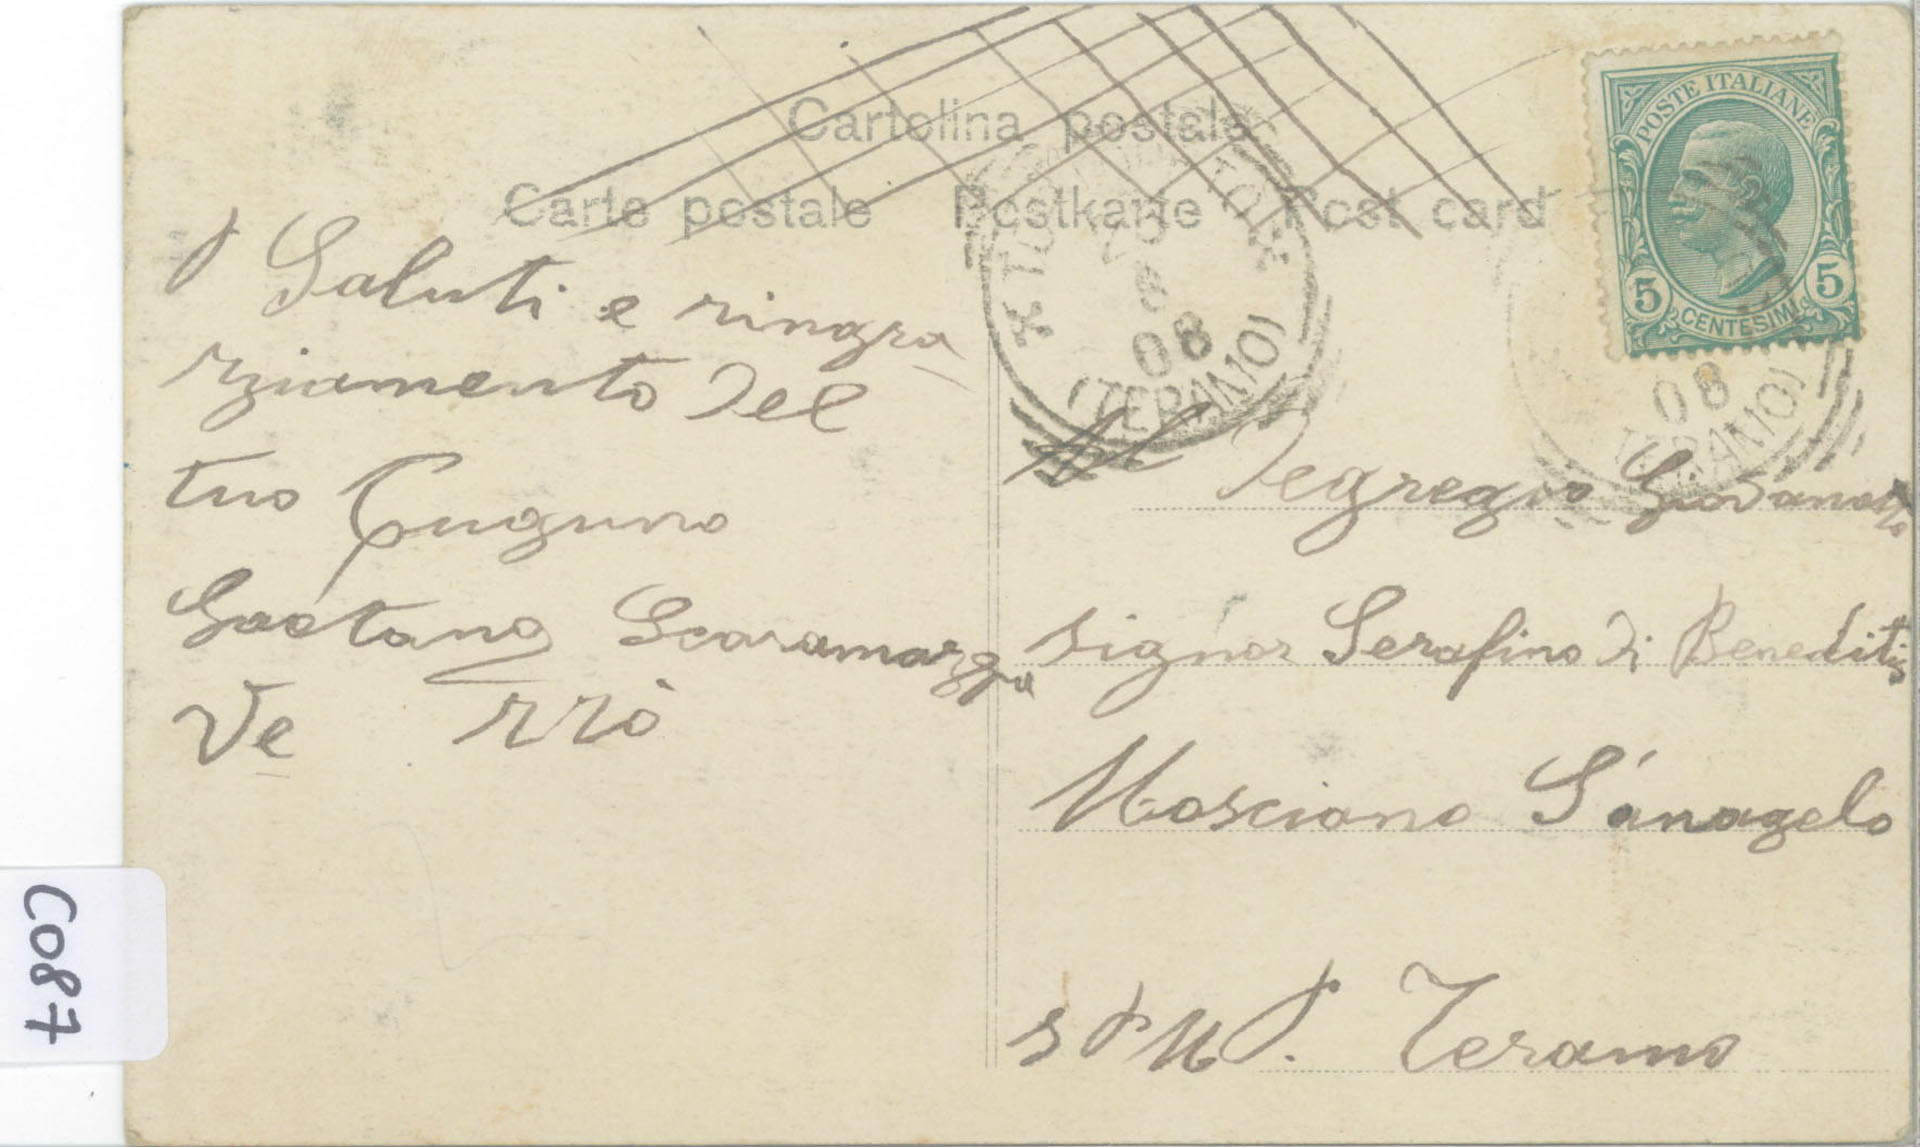 Cartolina postale
Carte postale Postkarte Post card
POSTE ITALIANE
5 CENTESIMI 5
08
(TERAMO)
08
(TERAMO)
Saluti e ringra
ziamento del
tuo Cuguno
Gaetano Scaramazza
Ve rrò
Al Degregio Giovanotto
signor Serafino Di Beneditis
Mosciano S'anagelo
Teramo
C087